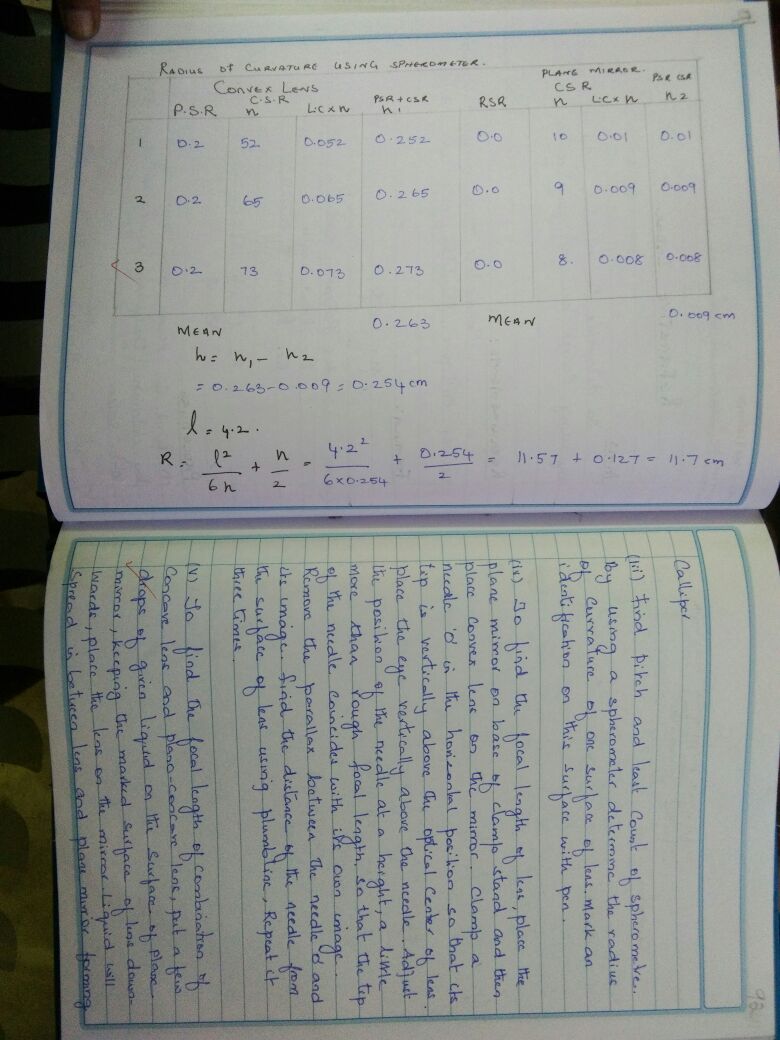 RADIUS OF CURVATURE USING SPHEROMETER.
CONVEX LENS PLANE MIRROR.
P.S.R C.S.R n L.C x n PSR + CSR h1 RSR CSR n L.C x n PSR CSR h2
1 0.2 52 0.052 0.252 0.0 10 0.01 0.01
2 0.2 65 0.065 0.265 0.0 9 0.009 0.009
3 0.2 73 0.073 0.273 0.0 8. 0.008 0.008
MEAN 0.263 MEAN 0.009 cm
h = h1 - h2
= 0.263 - 0.009 = 0.254 cm
l = 4.2.
R = l²/6h + h/2 = 4.2²/6x0.254 + 0.254/2 = 11.57 + 0.127 = 11.7 cm
92
Calliper
(iii) Find Pitch and least Count of spherometre.
By using a spherometer determine the radius
of curvature of one surface of lens. Mark an
identification on this surface with pen.
(iv) To find the focal length of lens, place the
plane mirror on base of clamp stand and then
place convex lens on the mirror. Clamp a
needle 'O' in the horizontal position so that its
tip is vertically above the optical center of lens.
place the eye vertically above the needle. Adjust
the position of the needle at a height, a little
more than rough focal length, so that the tip
of the needle coincides with its own image.
Remove the parallax between the needle O and
its image. find the distance of the needle from
the surface of lens using plumbline, Repeat it
three times.
(v) To find the focal length of combination of
concave lens and plano-concave lens, put a few
drops of given liquid on the surface of plane
mirror, keeping the marked surface of lens down-
wards, place the lens on the mirror. Liquid will
spread in between lens and plane mirror forming